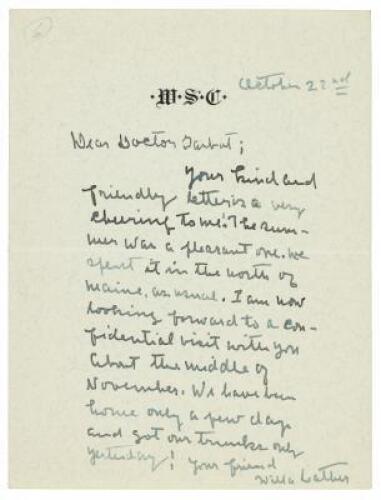 October 22nd
·W·S·C·
Dear Doctor Tarbot;
Your kind and
friendly letter is a very
cheering to me. The sum-
mer was a pleasant one. We
spent it in the north of
Maine, as usual. I am now
looking forward to a con-
fidential visit with you
about the middle of
November. We have been
home only a few days
and got our trunks only
yesterday! Your friend
Willa Cather